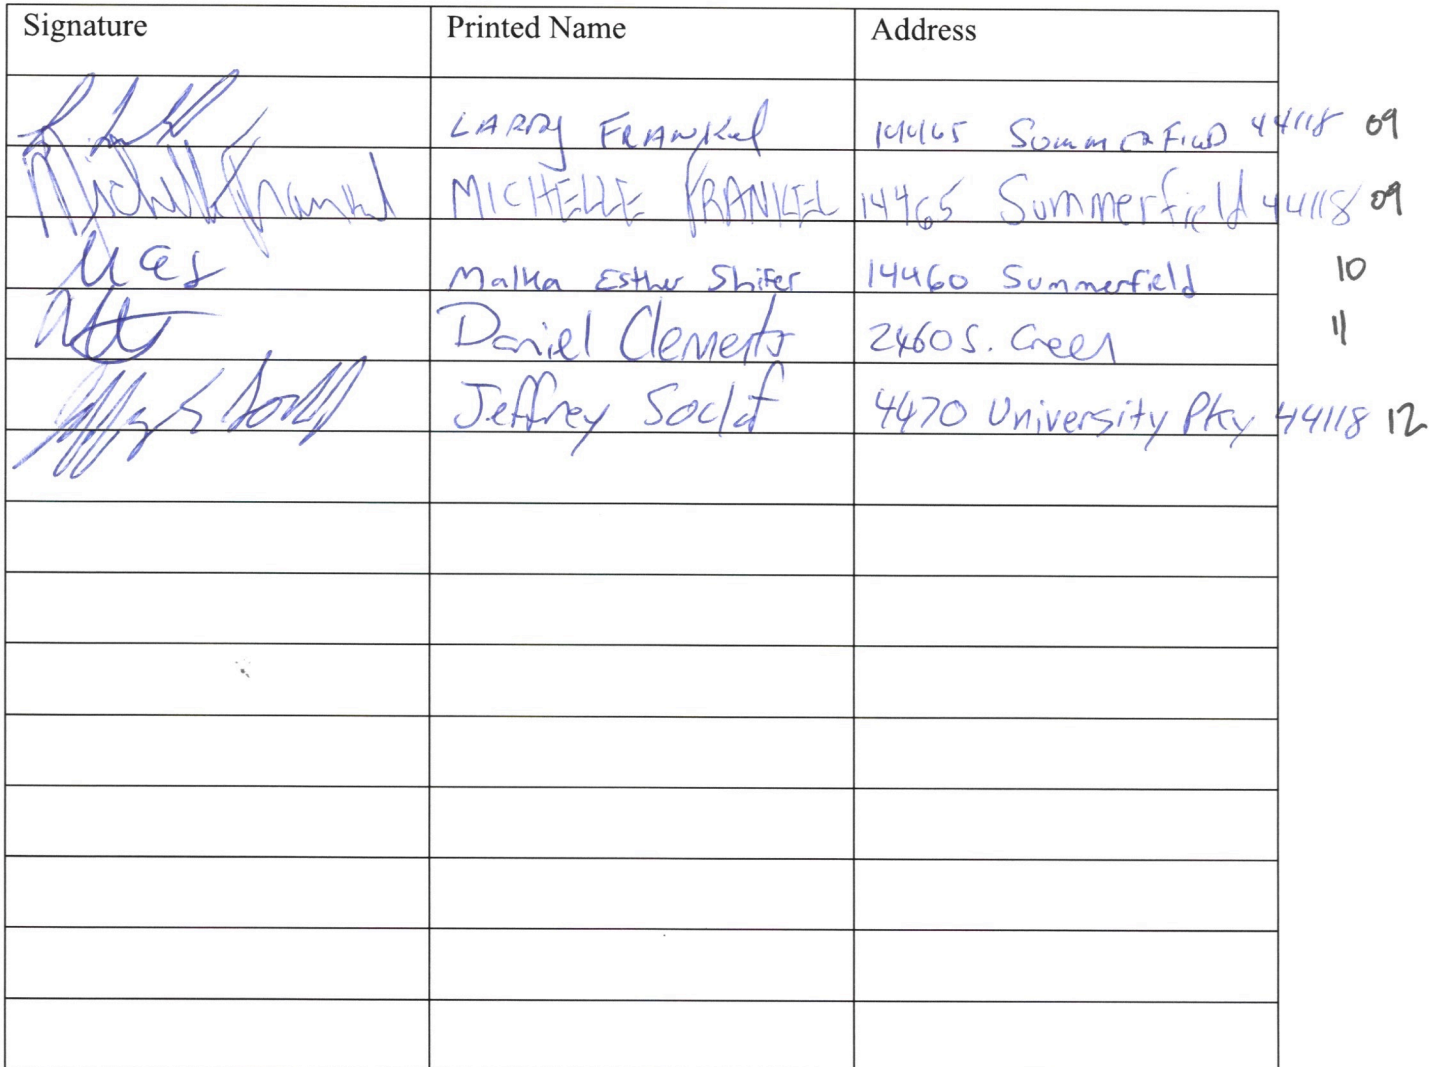 Signature Printed Name Address
LARRY FRANKEL 14465 SummerField 44118 09
Michelle Frankel MICHELLE FRANKEL 14465 Summerfield 44118 09
MES Malka Esther Shifer 14460 Summerfield 10
Daniel Clements 2460 S. Green 11
Jeffrey 4470 University Pky 44118 12